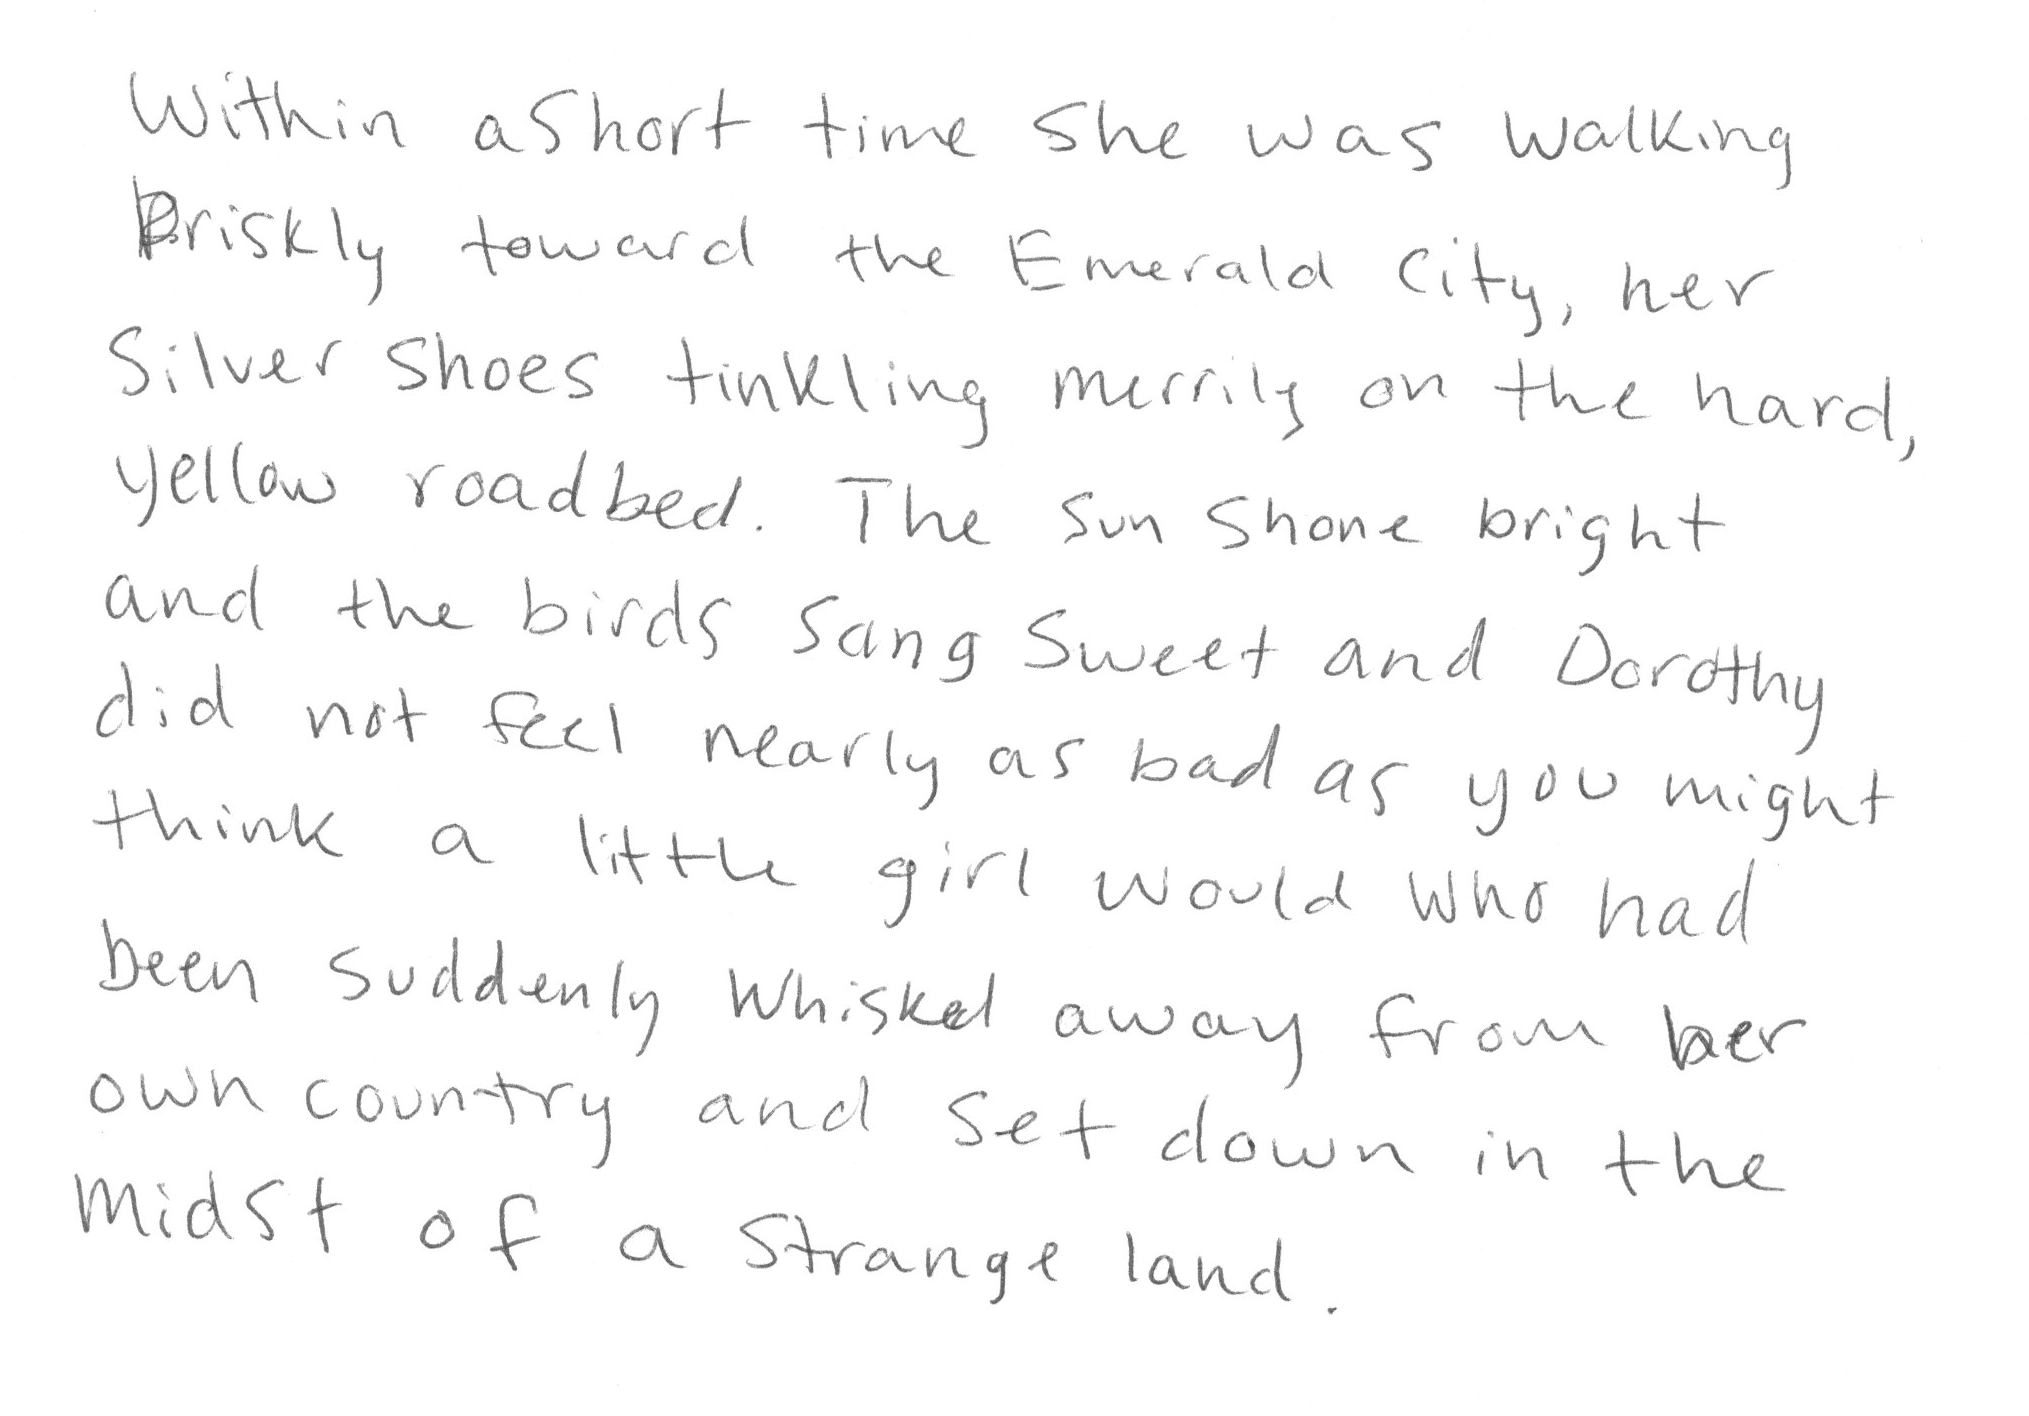 Within a short time she was walking
Briskly toward the Emerald City, her
Silver Shoes tinkling merrily on the hard,
yellow roadbed. The sun shone bright
and the birds sang sweet and Dorothy
did not feel nearly as bad as you might
think a little girl would who had
been suddenly whisked away from her
own country and set down in the
midst of a strange land.